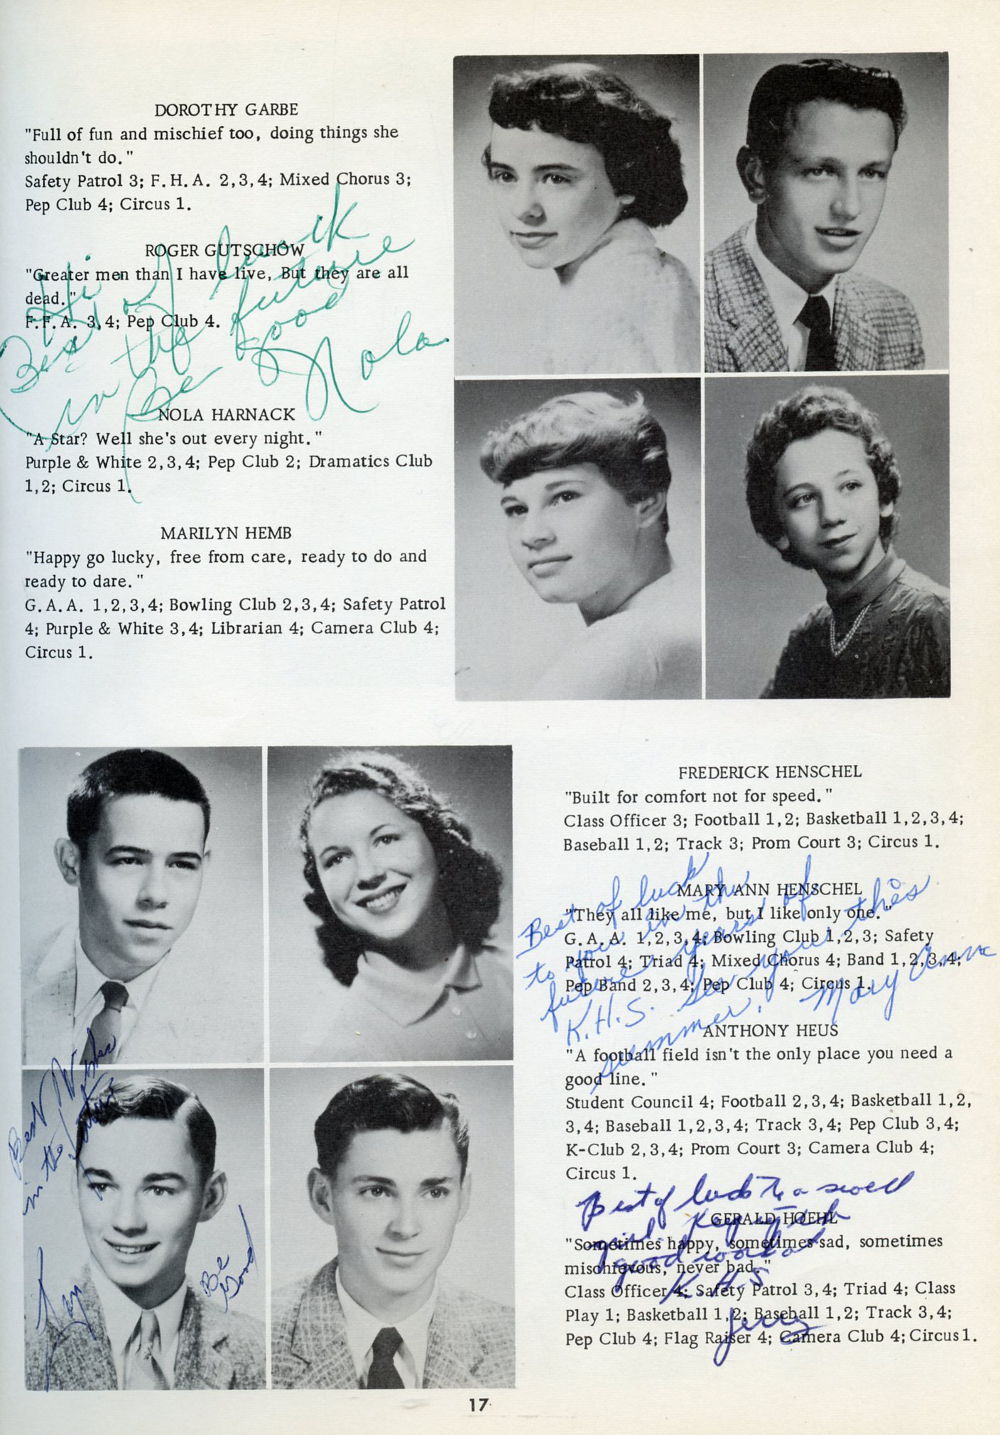 DOROTHY GARBE
"Full of fun and mischief too, doing things she
shouldn't do."
Safety Patrol 3; F.H.A. 2,3,4; Mixed Chorus 3;
Pep Club 4; Circus 1.
ROGER GUTSCHOW
"Greater men than I have live, But they are all
dead."
F.F.A. 3,4; Pep Club 4.
Hi
Best of luck
in the future
Be good
Nola
NOLA HARNACK
"A Star? Well she's out every night."
Purple & White 2,3,4; Pep Club 2; Dramatics Club
1,2; Circus 1.
MARILYN HEMB
"Happy go lucky, free from care, ready to do and
ready to dare."
G.A.A. 1,2,3,4; Bowling Club 2,3,4; Safety Patrol
4; Purple & White 3,4; Librarian 4; Camera Club 4;
Circus 1.
Best Wishes
in the future
Be
Good
FREDERICK HENSCHEL
"Built for comfort not for speed."
Class Officer 3; Football 1,2; Basketball 1,2,3,4;
Baseball 1,2; Track 3; Prom Court 3; Circus 1.
MARY ANN HENSCHEL
"They all like me, but I like only one."
G.A.A. 1,2,3,4; Bowling Club 1,2,3; Safety
Patrol 4; Triad 4; Mixed Chorus 4; Band 1,2,3,4;
Pep Band 2,3,4; Pep Club 4; Circus 1.
Best of luck
to you in the
future years of
K.H.S. See you this
summer.
Mary Ann
ANTHONY HEUS
"A football field isn't the only place you need a
good line."
Student Council 4; Football 2,3,4; Basketball 1,2,
3,4; Baseball 1,2,3,4; Track 3,4; Pep Club 3,4;
K-Club 2,3,4; Prom Court 3; Camera Club 4;
Circus 1.
Best of luck to a swell
girl. Keep up the
good work at
K.H.S
Jerry
GERALD HOEHL
"Sometimes happy, sometimes sad, sometimes
mischievous, never bad."
Class Officer 4; Safety Patrol 3,4; Triad 4; Class
Play 1; Basketball 1,2; Baseball 1,2; Track 3,4;
Pep Club 4; Flag Raiser 4; Camera Club 4; Circus 1.
17